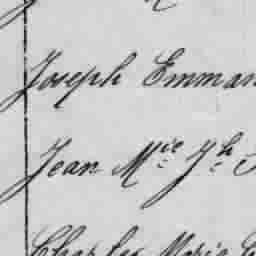 Joseph Emman
Jean Mie Jh
Charles Marie